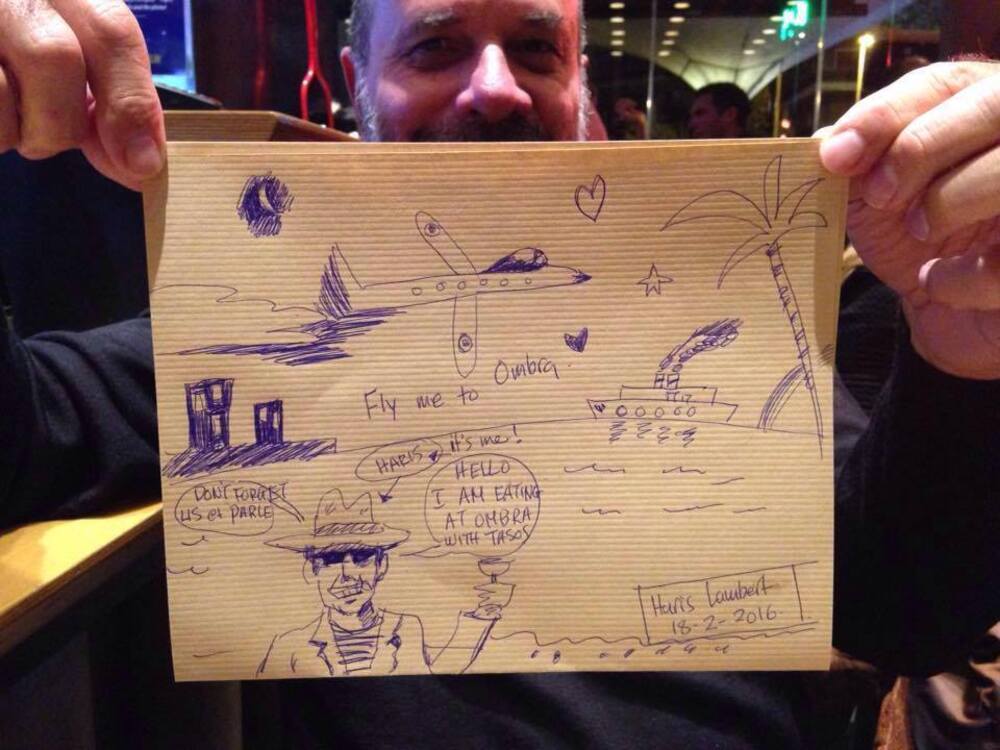 Fly me to Ombra.
HARIS it's me!
DON'T FORGET
US et PARLE
HELLO
I AM EATING
AT OMBRA
WITH TASOS
Haris Lambert
18-2-2016